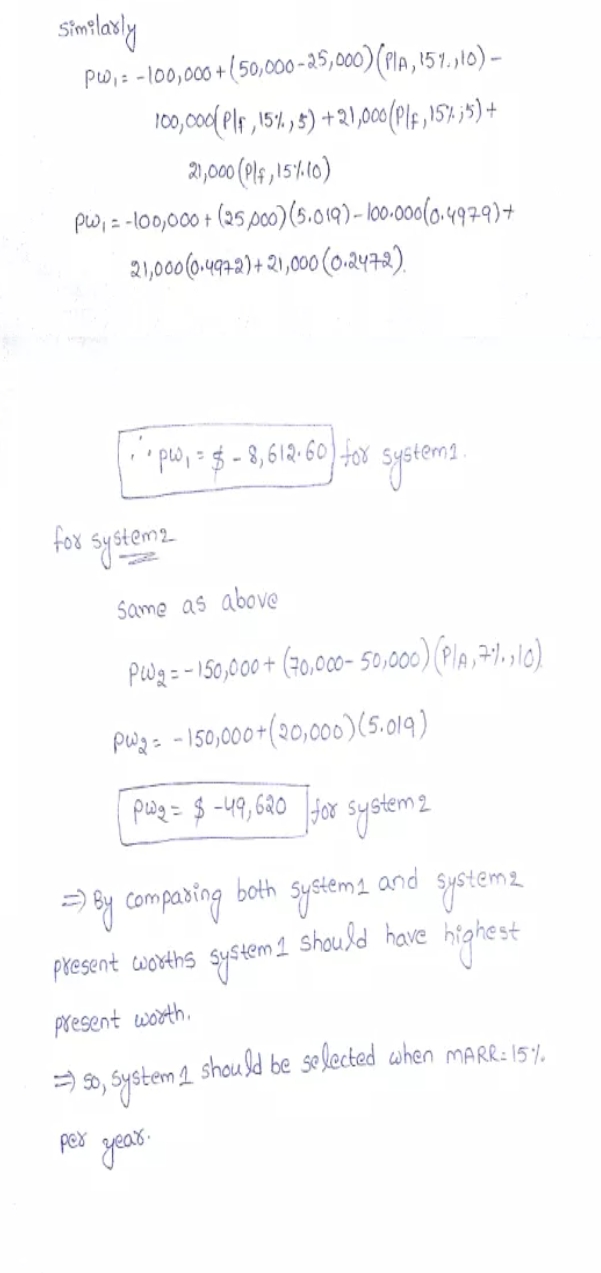 Similarly
PW₁ = -100,000 + (50,000 - 25,000) (P/A, 15%, 10) -
100,000(P/f, 15%, 5) + 21,000 (P/f, 15%, 5) +
21,000 (P/f, 15%.10)
PW₁ = -100,000 + (25,000) (5.019) - 100.000(0.4979) +
21,000 (0.4972) + 21,000 (0.2472).
∴ PW₁ = $ - 8,612.60 for system1.
for system2
Same as above
PW₂ = -150,000 + (70,000 - 50,000) (P/A, 7%, 10)
PW₂ = -150,000 + (20,000) (5.019)
PW₂ = $ -49,620 for system 2
⇒ By comparing both system1 and system2
present worths system 1 should have highest
present worth.
⇒ so, system 1 should be selected when MARR = 15%
per year.